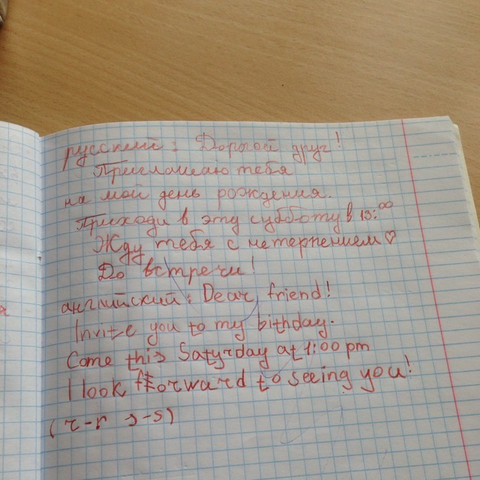 русский: Дорогой друг!
Приглашаю тебя
на мой день рождения.
Приходи в эту субботу в 13:00
Жду тебя с нетерпением ♡
До встречи!
английский: Dear friend!
Invite you to my bithday.
Come this Satyrday at 1:00 pm
I look forward to seeing you!
(r-r s-s)